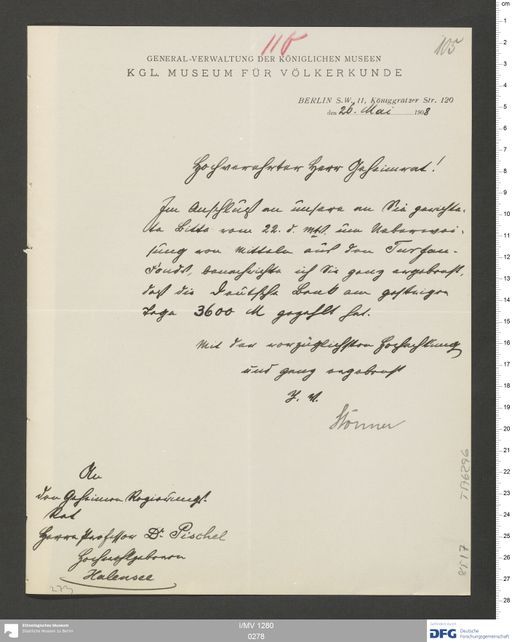 116
105
GENERAL-VERWALTUNG DER KÖNIGLICHEN MUSEEN
KGL. MUSEUM FÜR VÖLKERKUNDE
BERLIN S.W. 11, Königgrätzer Str. 120
den 26. Mai 1908
Hochverehrter Herr Geheimrat!
Im Anschluß an unsere an Sie gerichte-
te Bitte vom 22. d. Mts. um Ueberwei-
sung von Mitteln aus dem Turfan-
Fonds, benachrichte ich Sie ganz ergebenst,
daß die Deutsche Bank am gestrigen
Tage 3600 M gezahlt hat.
Mit der vorzüglichsten Hochachtung
und ganz ergebenst
I. V.
Stönner
An
den Geheimen Regierungs-
Rat
Herrn Professor Dr. Pischel
Hochwohlgeboren
Halensee
Ethnologisches Museum
Staatliche Museen zu Berlin
I/MV 1280
0278
Gefördert durch
DFG Deutsche
Forschungsgemeinschaft
cm
1
2
3
4
5
6
7
8
9
10
11
12
13
14
15
16
17
18
19
20
21
22
23
24
25
26
27
28